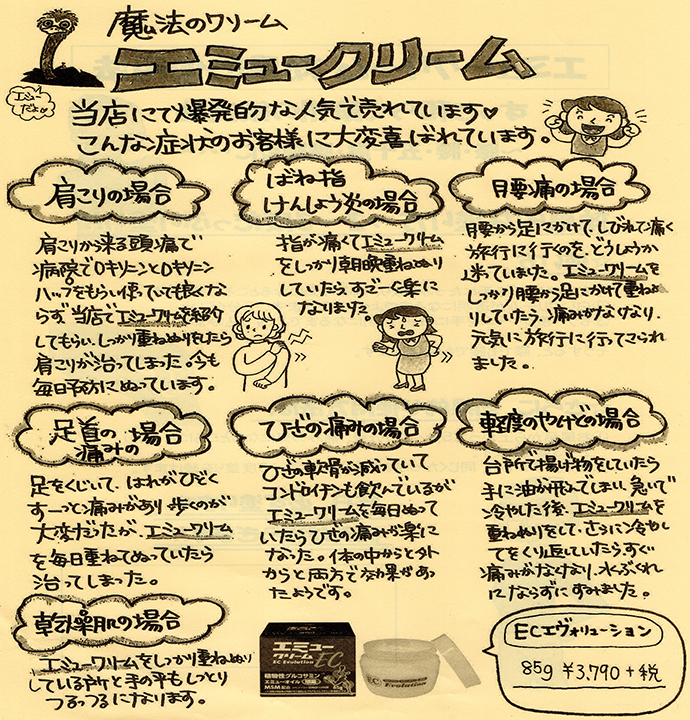 魔法のクリーム
エミュークリーム
エミューだょ♡
当店にて爆発的な人気で売れています♡
こんな症状のお客様に大変喜ばれています。
肩こりの場合
肩こりから来る頭痛で
病院でロキソニンとロキソニン
ハップをもらい使っていても良くな
らず当店でエミュークリームを紹介
してもらい、しっかり重ねぬりをしたら
肩こりが治ってしまった。今も
毎日予防にぬっています。
ばね指
けんしょう炎の場合
指が痛くてエミュークリーム
をしっかり朝晩重ねぬり
していたら、すごーく楽に
なりました
腰痛の場合
腰から足にかけて、しびれて痛く
旅行に行くのを、どうしようか
迷っていました。エミュークリームを
しっかり腰から足にかけて重ねぬ
りしていたら、痛みがなくなり、
元気に旅行に行ってこられ
ました。
足首の
痛みの
場合
足をくじいて、はれがひどく
ずーっと痛みがあり歩くのが
大変だったが、エミュークリーム
を毎日重ねてぬっていたら
治ってしまった。
ひざの痛みの場合
ひざの軟骨が減っていて
コンドロイチンも飲んでいるが
エミュークリームを毎日ぬって
いたらひざの痛みが楽に
なった。体の中からと外
からと両方で効果があっ
たようです。
軽度のやけどの場合
台所で揚げ物をしていたら
手に油が飛んでしまい、急いで
冷やした後、エミュークリームを
重ねぬりをして、さらに冷やし
てをくり返していたらすぐ
痛みがなくなり、水ぶくれ
にならずにすみました。
乾燥肌の場合
エミュークリームをしっかり重ねぬり
している所と手の平もしっとり
つるっつるになります。
エミュー
クリーム
EC Evolution
EC
植物性グルコサミン
エミューオイル
MSM配合
EC
Evolution
ECエヴォリューション
85g ¥3,790+税